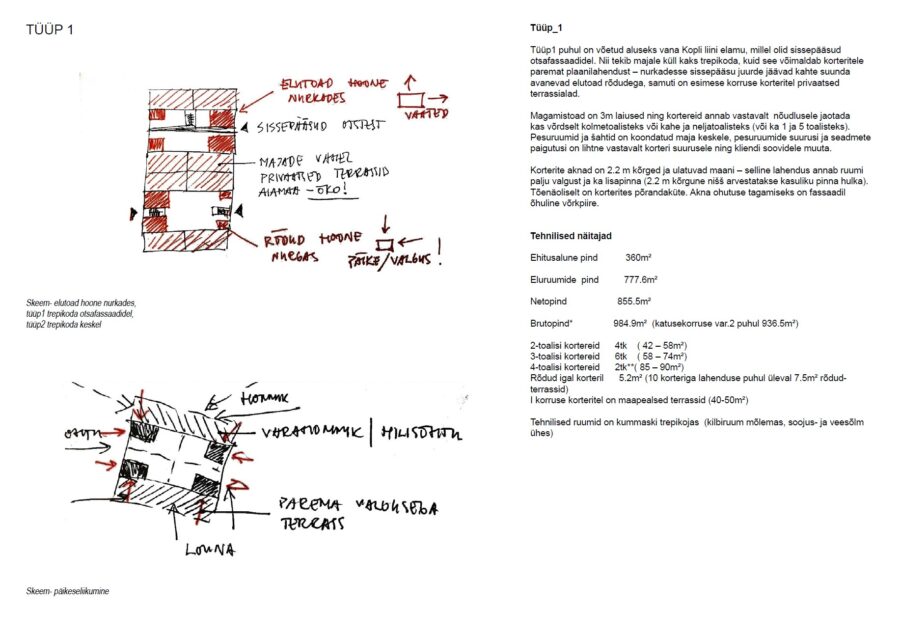 TÜÜP 1
ELUTOAD HOONE
NURKADES
VAATED
SISSEPÄÄSUD OTSTEST
MAJADE VAHEL
PRIVAATSED TERRASSID
AIAMAA - ÖKO!
RÕDUD HOONE
NURGAS
PÄIKE/VALGUS!
Skeem- elutoad hoone nurkades,
tüüp1 trepikoda otsafassaadidel,
tüüp2 trepikoda keskel
HOMMIK
VARAHOMMIK
PAREMA VALGUSEGA
TERRASS
LÕUNA
Skeem- päikeseliikumine
Tüüp_1
Tüüp1 puhul on võetud aluseks vana Kopli liini elamu, millel olid sissepääsud
otsafassaadidel. Nii tekib majale küll kaks trepikoda, kuid see võimaldab korteritele
paremat plaanilahendust – nurkadesse sissepääsu juurde jäävad kahte suunda
avanevad elutoad rõdudega, samuti on esimese korruse korteritel privaatsed
terrassialad.
Magamistoad on 3m laiused ning kortereid annab vastavalt nõudlusele jaotada
kas võrdselt kolmetoalisteks või kahe ja neljatoalisteks (või ka 1 ja 5 toalisteks).
Pesuruumid ja šahtid on koondatud maja keskele, pesuruumide suurusi ja seadmete
paigutusi on lihtne vastavalt korteri suurusele ning kliendi soovidele muuta.
Korterite aknad on 2.2 m kõrged ja ulatuvad maani – selline lahendus annab ruumi
palju valgust ja ka lisapinna (2.2 m kõrgune nišš arvestatakse kasuliku pinna hulka).
Tõenäoliselt on korterites põrandaküte. Akna ohutuse tagamiseks on fassaadil
õhuline võrkpiire.
Tehnilised näitajad
Ehitusalune pind 360m²
Eluruumide pind 777.6m²
Netopind 855.5m²
Brutopind* 984.9m² (katusekorruse var.2 puhul 936.5m²)
2-toalisi kortereid 4tk ( 42 – 58m²)
3-toalisi kortereid 6tk ( 58 – 74m²)
4-toalisi kortereid 2tk**( 85 – 90m²)
Rõdud igal korteril 5.2m² (10 korteriga lahenduse puhul üleval 7.5m² rõdud-
terrassid)
I korruse korteritel on maapealsed terrassid (40-50m²)
Tehnilised ruumid on kummaski trepikojas (kilbiruum mõlemas, soojus- ja veesõlm
ühes)